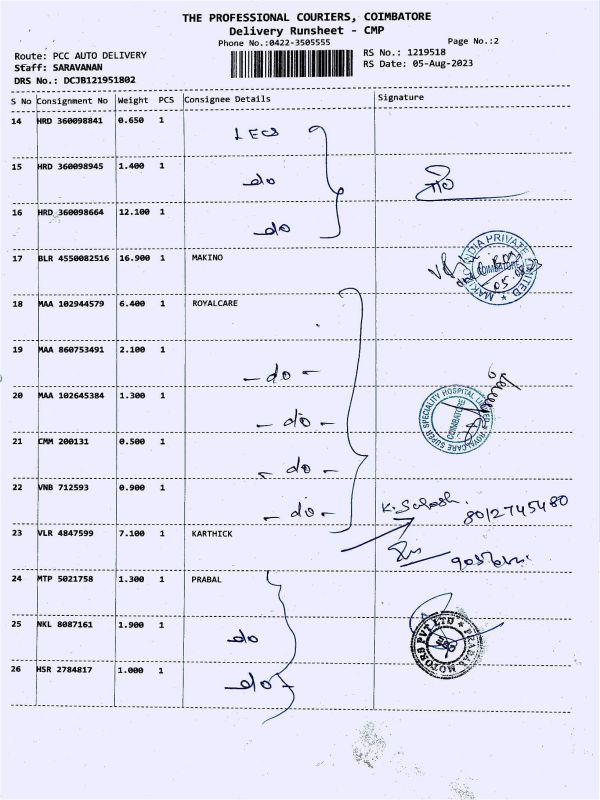 THE PROFESSIONAL COURIERS, COIMBATORE
Delivery Runsheet - CMP
Phone No.:0422-3505555
Page No.:2
Route: PCC AUTO DELIVERY
RS No.: 1219518
Staff: SARAVANAN
RS Date: 05-Aug-2023
DRS No.: DCJB121951802
S No Consignment No Weight PCS Consignee Details Signature
14 HRD 360098841 0.650 1 LECS
15 HRD 360098945 1.400 1 do
16 HRD 360098664 12.100 1 do
17 BLR 4550082516 16.900 1 MAKINO
MAKINO INDIA PRIVATE LIMITED
COIMBATORE
18 MAA 102944579 6.400 1 ROYALCARE
19 MAA 860753491 2.100 1 - do -
20 MAA 102645384 1.300 1 - do -
ROYALCARE SUPER SPECIALITY HOSPITAL LIMITED
COIMBATORE
21 CMM 200131 0.500 1 - do -
22 VNB 712593 0.900 1 - do -
8012745480
23 VLR 4847599 7.100 1 KARTHICK
24 MTP 5021758 1.300 1 PRABAL
25 NKL 8087161 1.900 1 do
PRABAL MOTORS PVT LTD
26 HSR 2784817 1.000 1 - do -